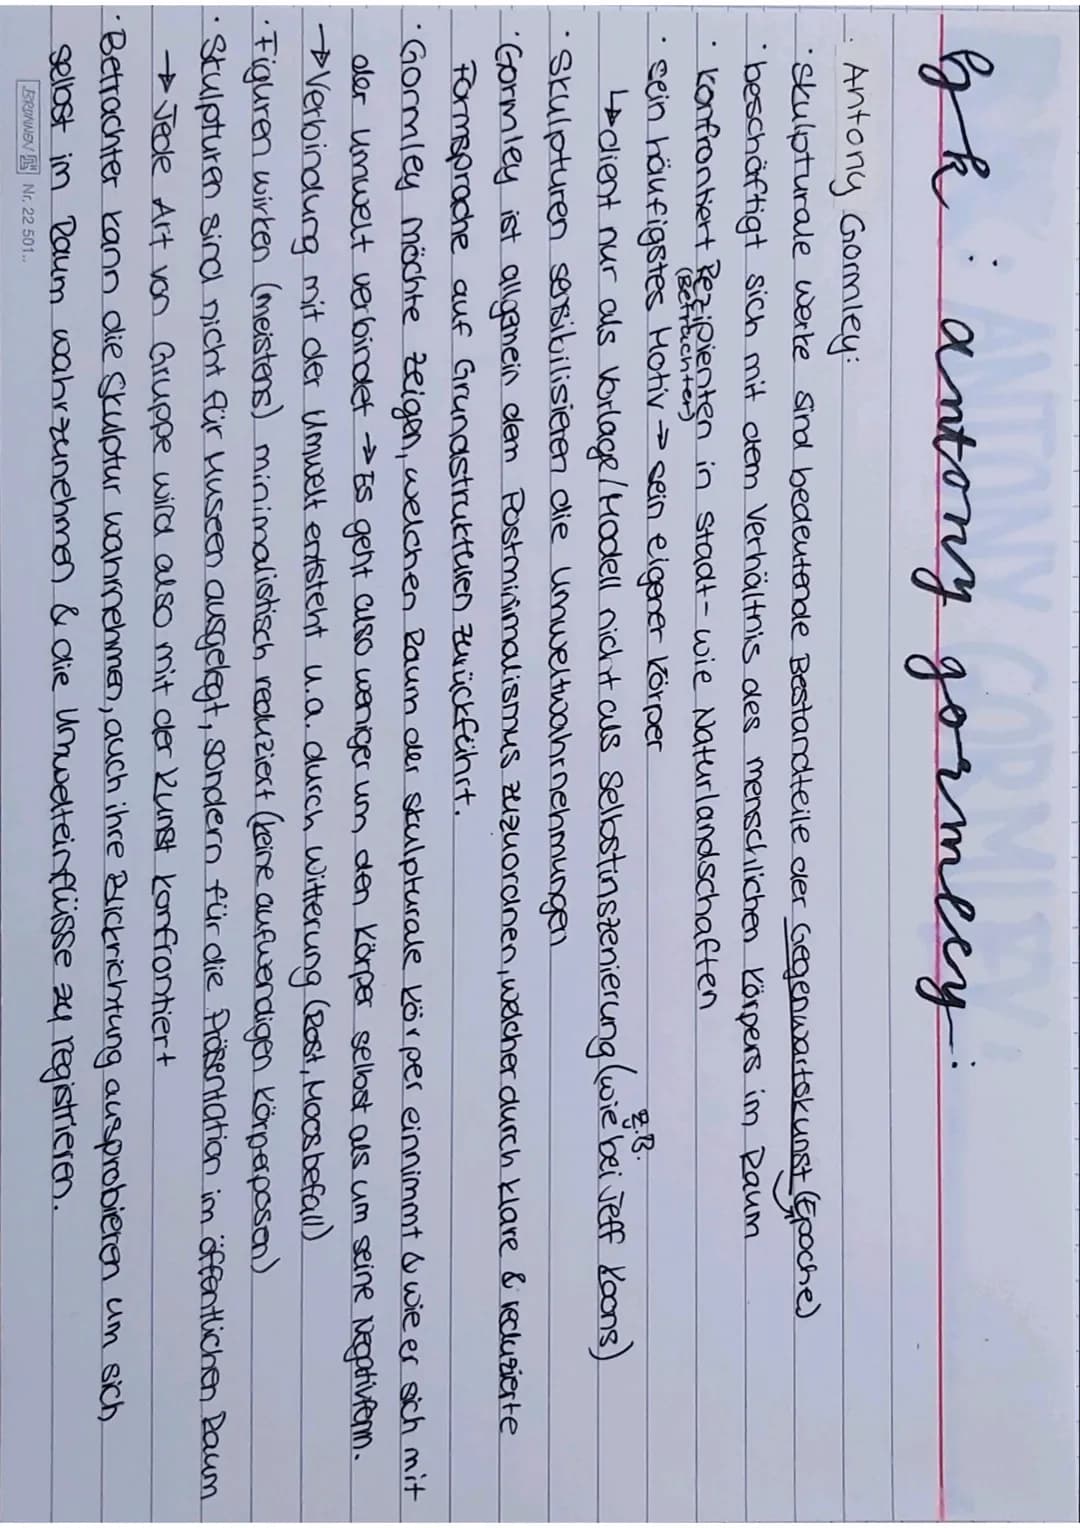 bk: antony gormley:
· Antony Gormley:
· skulpturale Werke sind bedeutende Bestandteile der Gegenwartskunst (Epoche)
· beschäftigt sich mit dem Verhältnis des menschlichen Körpers im Raum
· konfrontiert Rezipienten in Stadt- wie Naturlandschaften
(Betrachter)
· sein häufigstes Motiv → sein eigener Körper
z.B.
↳ dient nur als Vorlage/Modell nicht als Selbstinszenierung (wie bei Jeff Koons)
· Skulpturen sensibilisieren die Umweltwahrnehmungen
· Gormley ist allgemein dem Postminimalismus zuzuordnen, welcher durch klare & reduzierte
Formsprache auf Grundstrukturen zurückführt.
· Gormley möchte zeigen, welchen Raum der skulpturale Körper einnimmt & wie er sich mit
der Umwelt verbindet → Es geht also weniger um den Körper selbst als um seine Negativform.
→ Verbindung mit der Umwelt entsteht u.a. durch Witterung (Rost, Moosbefall)
· Figuren wirken (meistens) minimalistisch reduziert (keine aufwendigen Körperposen)
· Skulpturen sind nicht für Museen ausgelegt, sondern für die Präsentation im öffentlichen Raum
→ Jede Art von Gruppe wird also mit der Kunst konfrontiert
· Betrachter kann die Skulptur wahrnehmen, auch ihre Blickrichtung ausprobieren um sich
selbst im Raum wahrzunehmen & die Umwelteinflüsse zu registrieren.
BRUNNEN Nr. 22 501..